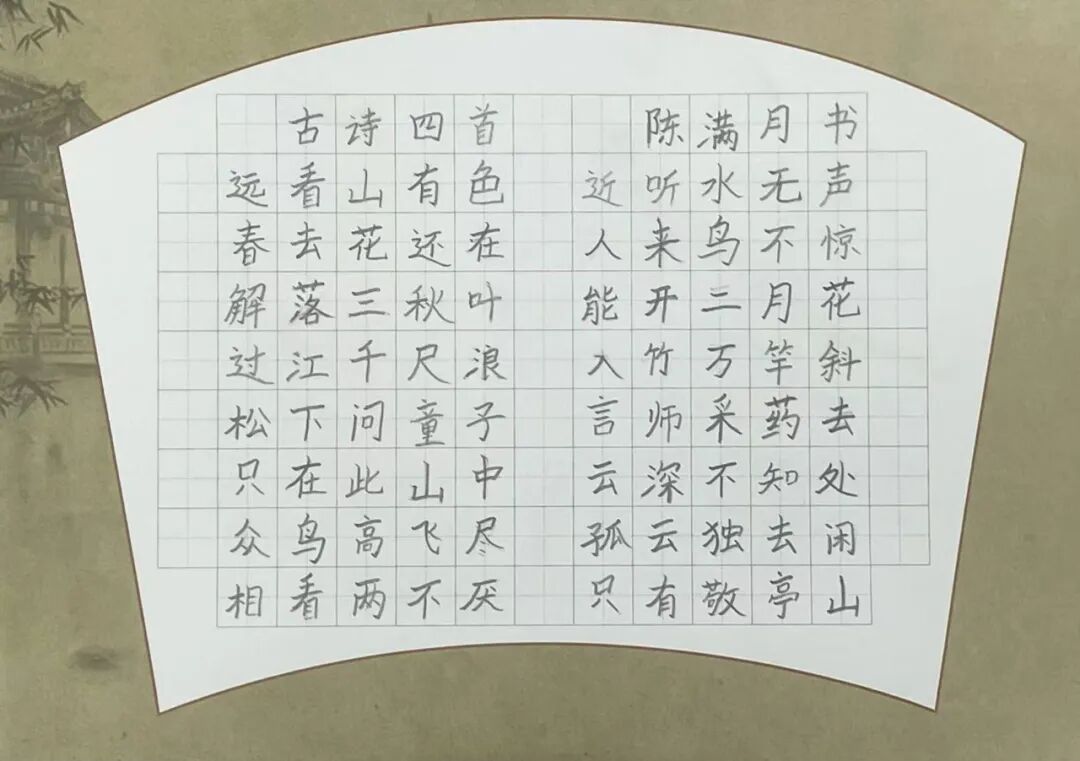 古诗四首 陈满月书
远看山有色 近听水无声
春去花还在 人来鸟不惊
解落三秋叶 能开二月花
过江千尺浪 入竹万竿斜
松下问童子 言师采药去
只在此山中 云深不知处
众鸟高飞尽 孤云独去闲
相看两不厌 只有敬亭山